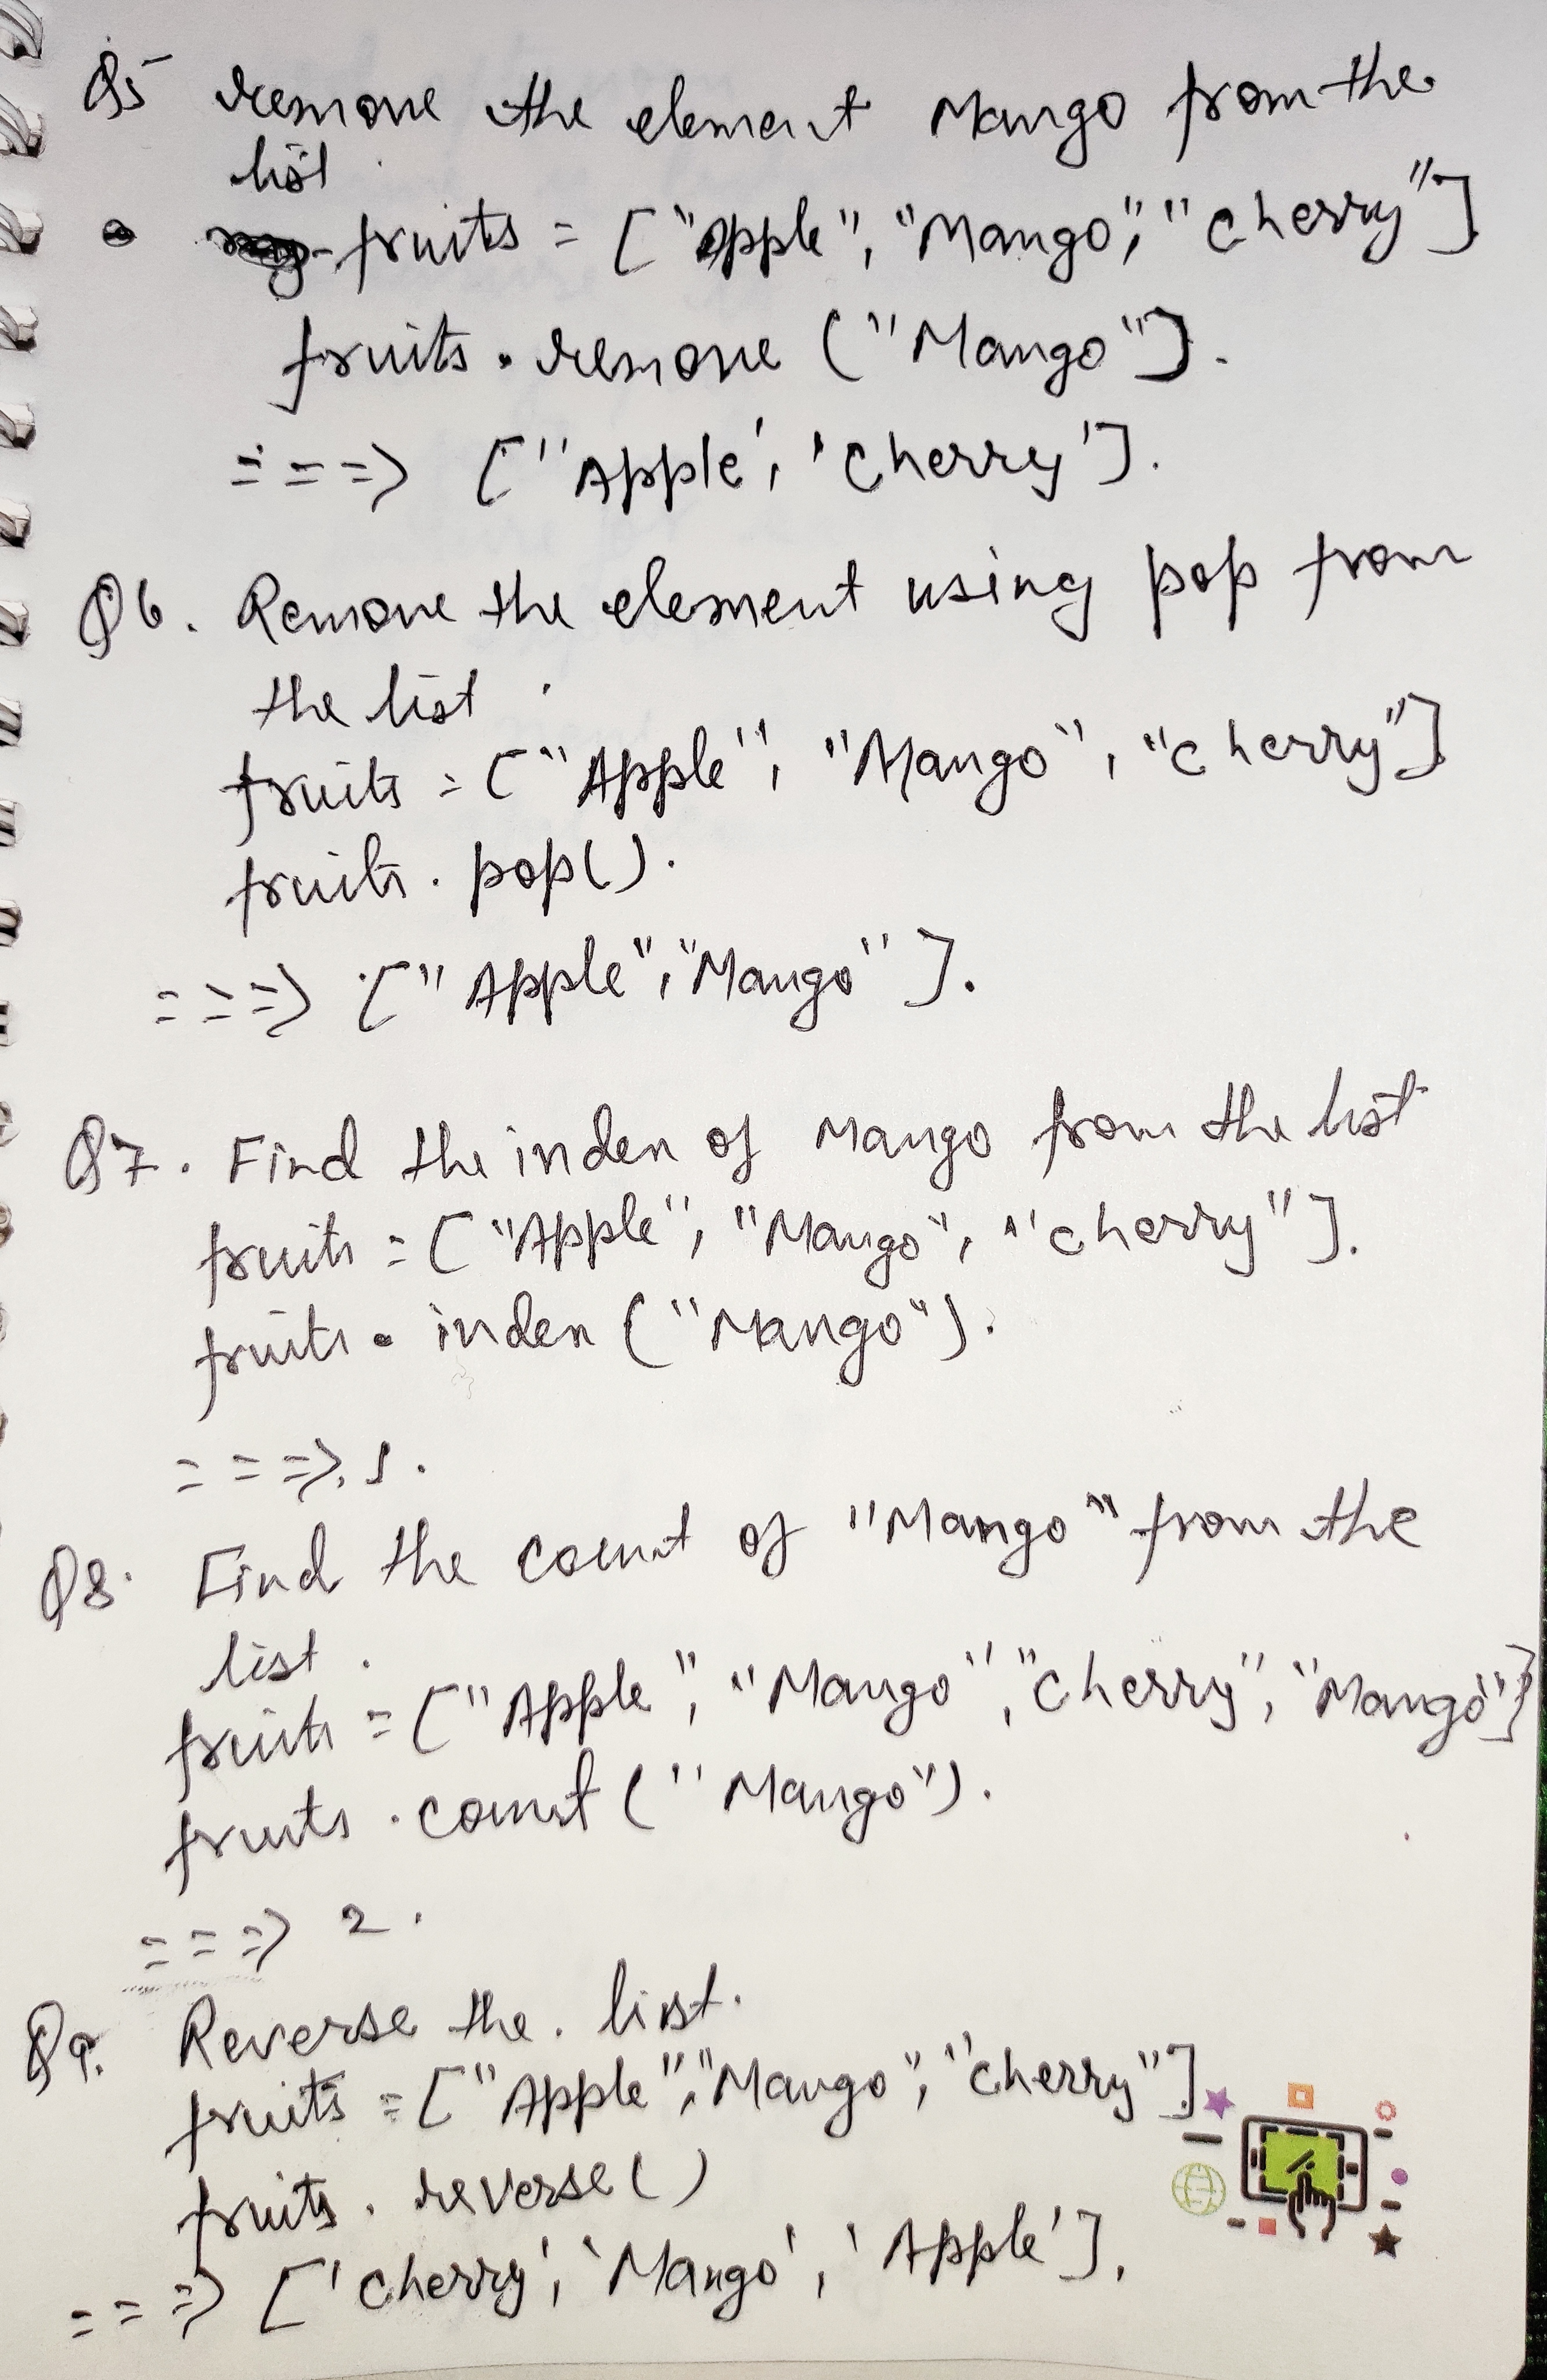 Q5 remove the element Mango from the
list
fruits = ["Apple", "Mango", "Cherry"]
fruits.remove ("Mango").
===> ["Apple', 'Cherry'].
Q6. Remove the element using pop from
the list.
fruits = ["Apple", "Mango", "Cherry"]
fruits.pop().
===> ["Apple", "Mango"].
Q7. Find the index of Mango from the list
fruits = ["Apple", "Mango", "Cherry"].
fruits.index ("Mango").
===> 1.
Q8. Find the count of "Mango" from the
list.
fruits = ["Apple", "Mango", "Cherry", "Mango"]
fruits.count ("Mango").
===> 2.
Q9. Reverse the. list.
fruits = ["Apple", "Mango", "Cherry"]
fruits.reverse()
===> ['Cherry', 'Mango', 'Apple'].